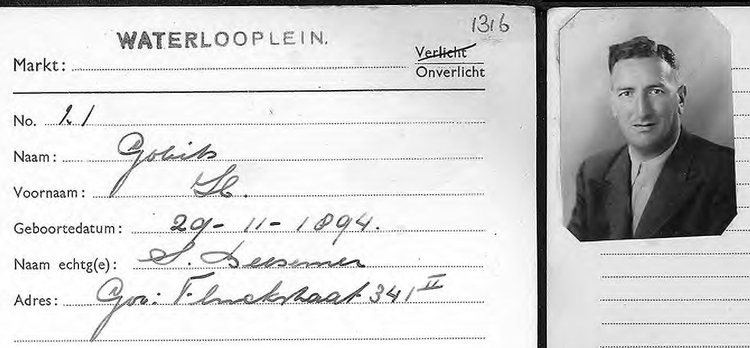 1316
WATERLOOPLEIN.
Markt:
Verlicht
Onverlicht
No. 21
Naam: Gobits
Voornaam: H.
Geboortedatum: 29-11-1894.
Naam echtg(e): S. Deesemer
Adres: Gov: Flinckstraat 341 II